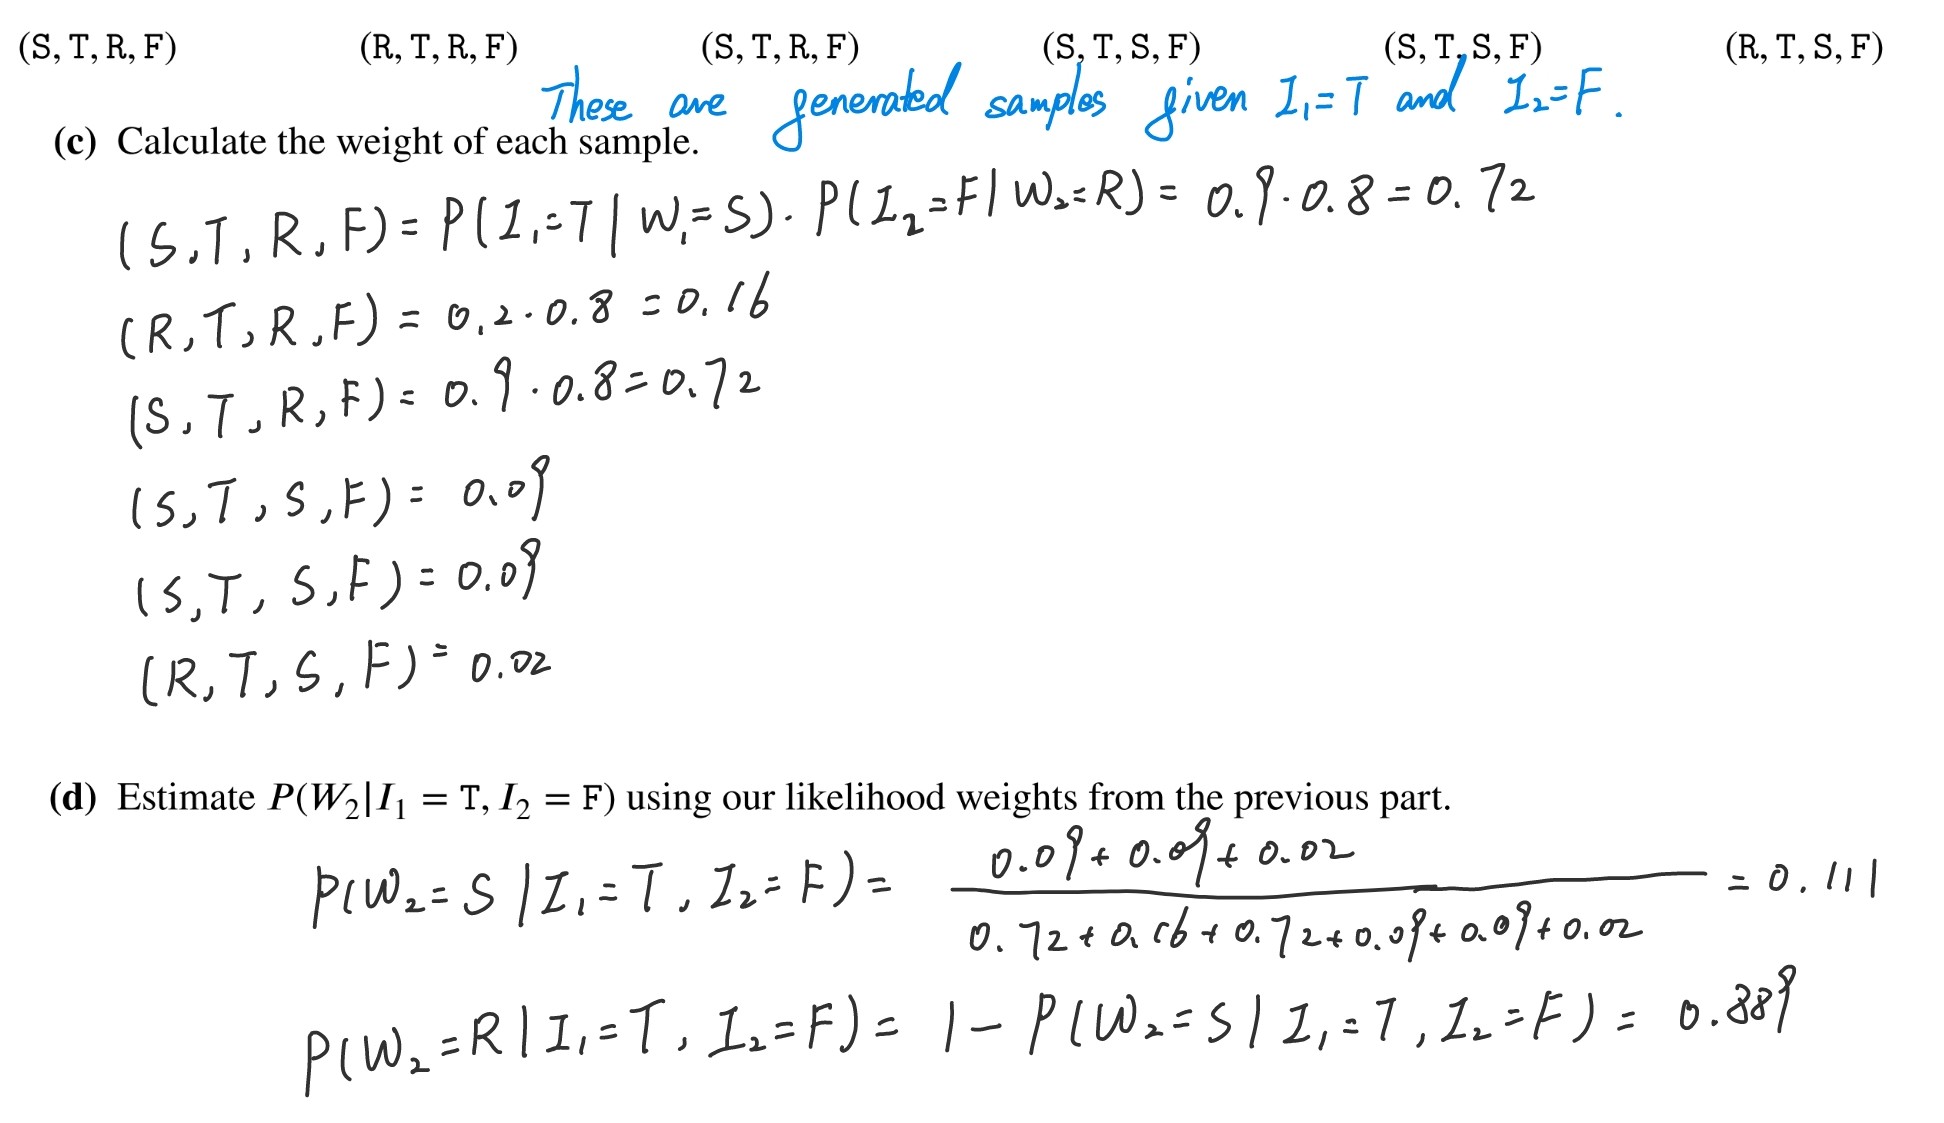 (S, T, R, F) (R, T, R, F) (S, T, R, F) (S, T, S, F) (S, T, S, F) (R, T, S, F)
These are generated samples given I₁=T and I₂=F.
(c) Calculate the weight of each sample.
(S,T,R,F) = P(I₁=T | W₁=S) · P(I₂=F | W₂=R) = 0.9 · 0.8 = 0.72
(R,T,R,F) = 0.2 · 0.8 = 0.16
(S,T,R,F) = 0.9 · 0.8 = 0.72
(S,T,S,F) = 0.09
(S,T,S,F) = 0.09
(R,T,S,F) = 0.02
(d) Estimate P(W₂|I₁ = T, I₂ = F) using our likelihood weights from the previous part.
0.09 + 0.09 + 0.02
P(W₂=S | I₁=T, I₂=F) = = 0.111
0.72 + 0.16 + 0.72 + 0.09 + 0.09 + 0.02
P(W₂=R | I₁=T, I₂=F) = 1 − P(W₂=S | I₁=T, I₂=F) = 0.889